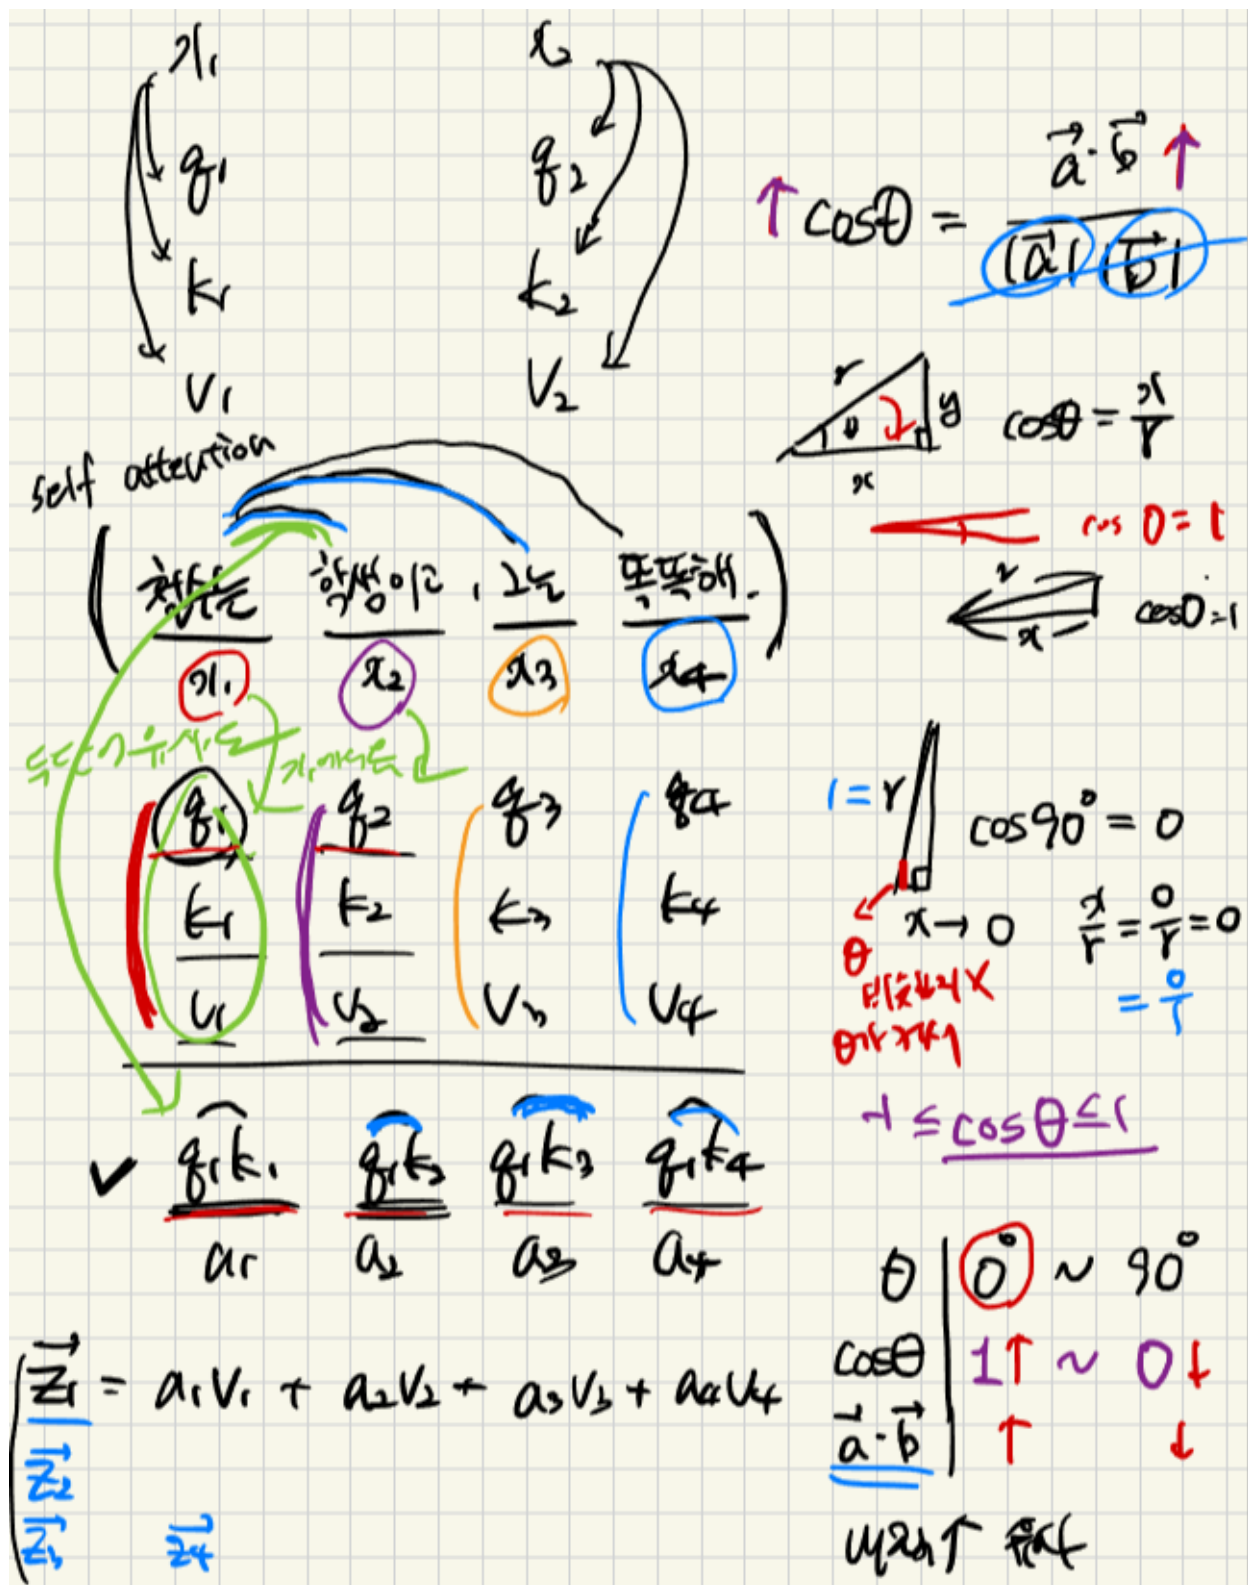 x₁ x₂
q₁ q₂
k₁ k₂
v₁ v₂
self attention
철수는 학생이고, 그는 똑똑해.
x₁ x₂ x₃ x₄
q₁ q₂ q₃ q₄
k₁ k₂ k₃ k₄
v₁ v₂ v₃ v₄
q₁k₁ q₁k₂ q₁k₃ q₁k₄
a₁ a₂ a₃ a₄
z₁ = a₁v₁ + a₂v₂ + a₃v₃ + a₄v₄
z₂
z₃ z₄
↑ cosθ = a·b ↑
|a| |b|
r θ y
x
cosθ = x/r
cos 0 = 1
r
x
cos0=1
1 = r
cos90° = 0
x → 0
x/r = 0/r = 0
= 0/1
θ
-1 ≤ cosθ ≤ 1
θ 0° ~ 90°
cosθ 1↑ ~ 0↓
a·b ↑ ↓
↑